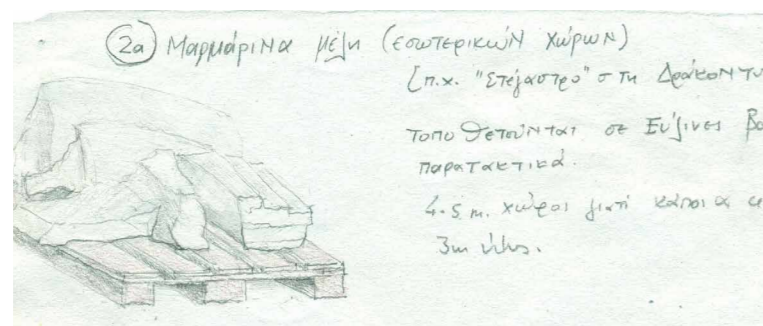 2α) Μαρμάρινα μέλη (εσωτερικών χώρων)
[π.χ. "Στέγαστρο" στη Δράκοντο
τοποθετούνται σε ξύλινες βα
παρατακτικά.
4.5 m. χώροι γιατί κάποια
3m ύψος.